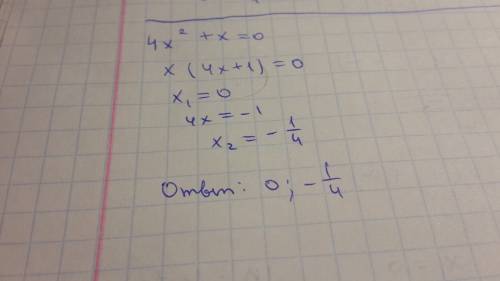 4x² + x = 0
x (4x+1) = 0
x₁ = 0
4x = -1
x₂ = - 1/4
Ответ: 0; - 1/4